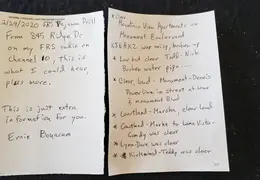 2/29/2020 FRS Drill
From 845 Ridge Dr
on my FRS radio on
Channel 10, this is
what I could hear,
plus more.
This is just extra
information for you.
Ernie
Vista Apartments on
Monument Boulevard
was noisy, broken-up
Low but clear Todd-Nick
Broken water pipe
Clear, loud - Monument-Dennis
Power line in street at
& monument Blvd
Courtland-Marsha, clear loud
Courtland-Marke to Loma Vista-
Candy was clear
Lynn-Dave was clear
Kirkwood-Teddy was clear